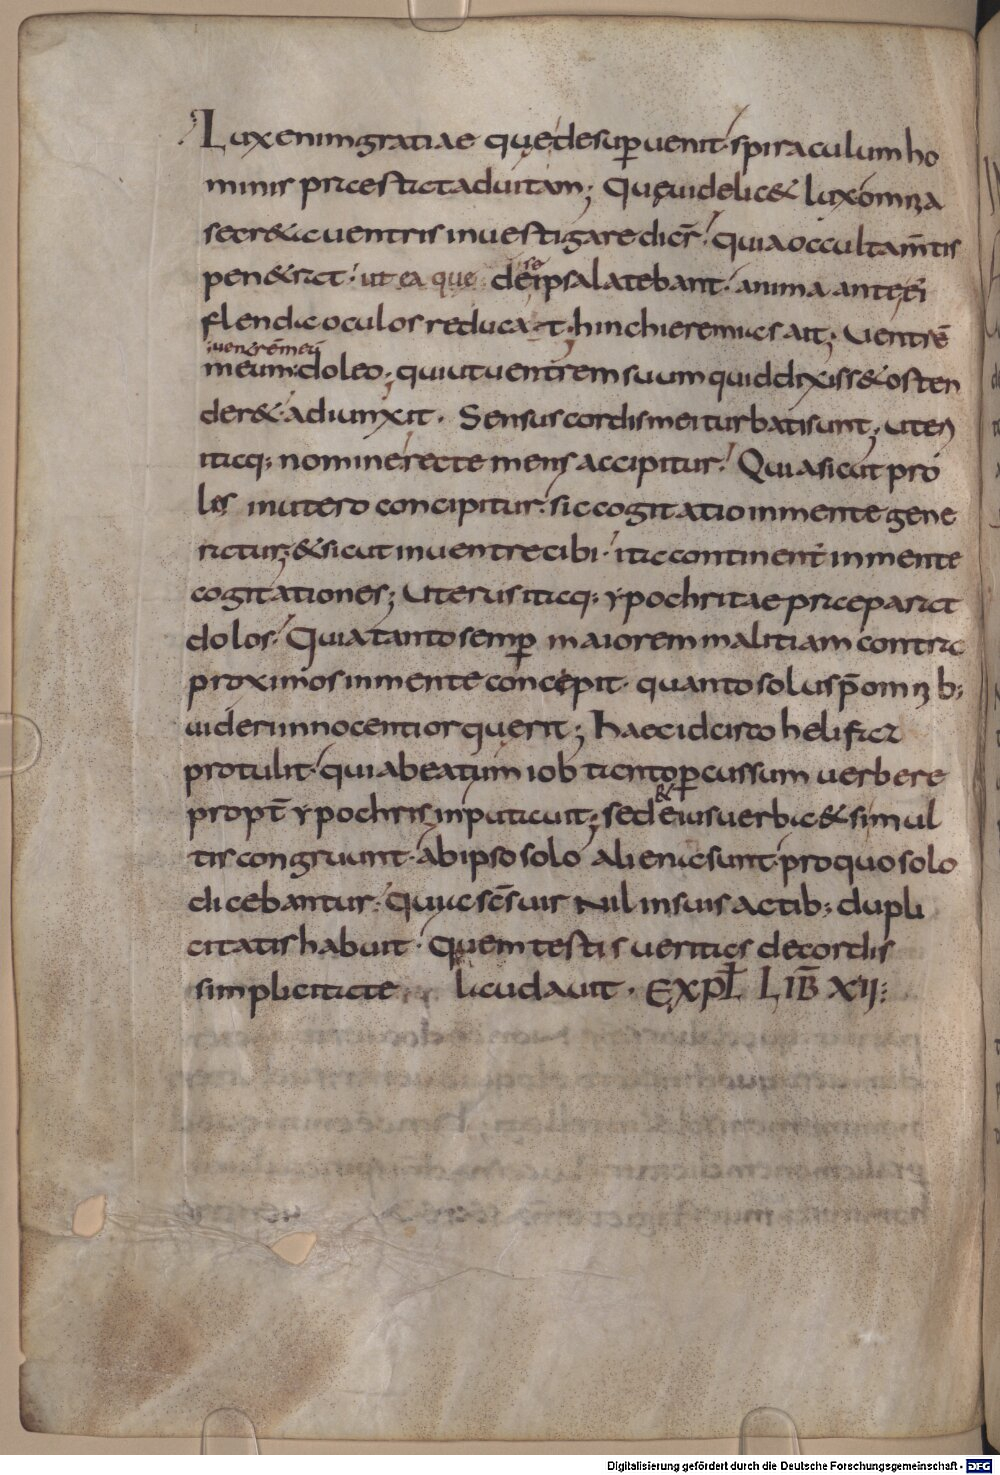 Lux enim gratiae quę desup̄ uenit· spiraculum ho
minis praestat ad uitam; Quę uidelic& lux omnia
secr&a uentris inuestigare dicit̄· quia occulta m̄tis
pen&rat· ut ea que de se ipsa latebant· animæ ante
flendi oculos reducat; hinc hieremias ait; Uentrē
uentrē meū
meum doleo; qui ut uentrem suum quid dixiss& osten
der& adiunxit· Sensus cordis mei turbati sunt; Uteri
itaq; nomine recte mens accipitur· Quia sicut pro
les in utero concipitur· sic cogitatio in mente gene
ratur; & sicut in uentre cibi· ita continent̄ in mente
cogitationes; Uterus itaq; ypochritae praeparat
dolos· Quia tanto semp̄ maiorem malitiam contra
proximos in mente concepit· quanto solus p̄ omnib;
uideri innocentior querit; Haec idcirco helifaz
protulit· qui abeatum iob tanto p̄cussum uerbere
propt̄ ypochrisin putauit; sed & eius uerba & simul
tis congruunt· ab ipso solo aliena sunt· pro quo solo
dicebantur· Quia sc̄s uir nil in suis actib; dupli
citatis habuit· Quem testis ueritas de cordis
simplicitate laudauit· EXPL̄ LIB̄ XII;
Digitalisierung gefördert durch die Deutsche Forschungsgemeinschaft - DFG